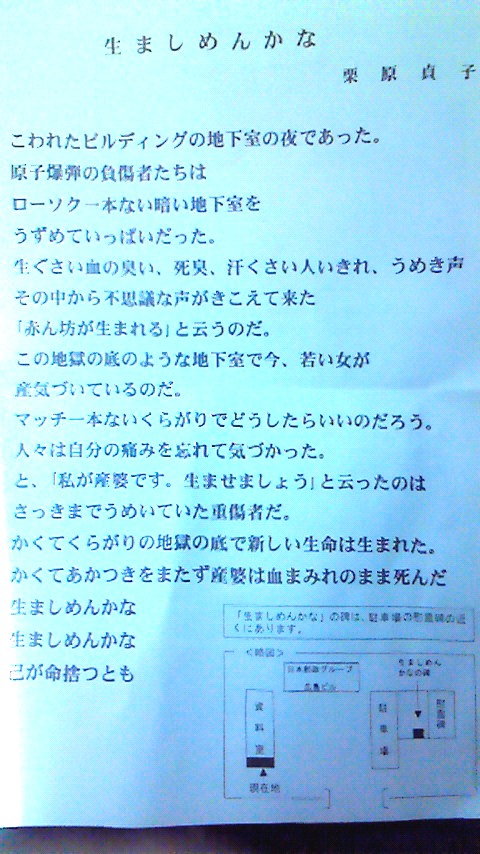 生ましめんかな
栗原貞子
こわれたビルディングの地下室の夜であった。
原子爆弾の負傷者たちは
ローソク一本ない暗い地下室を
うずめていっぱいだった。
生ぐさい血の臭い、死臭、汗くさい人いきれ、うめき声
その中から不思議な声がきこえて来た
「赤ん坊が生まれる」と云うのだ。
この地獄の底のような地下室で今、若い女が
産気づいているのだ。
マッチ一本ないくらがりでどうしたらいいのだろう。
人々は自分の痛みを忘れて気づかった。
と、「私が産婆です。生ませましょう」と云ったのは
さっきまでうめいていた重傷者だ。
かくてくらがりの地獄の底で新しい生命は生まれた。
かくてあかつきをまたず産婆は血まみれのまま死んだ
生ましめんかな
生ましめんかな
己が命捨つとも
「生ましめんかな」の碑は、駐車場の慰霊碑の近
くにあります。
<略図>
日本郵政グループ
広島ビル
生ましめん
かなの碑
資料室
駐車場
慰霊碑
現在地